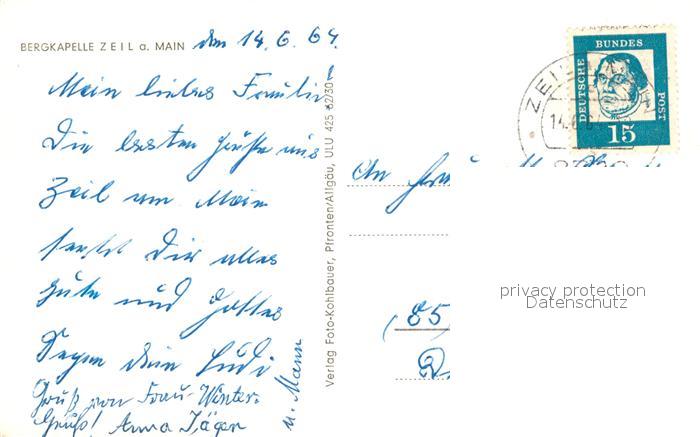 BERGKAPELLE ZEIL a. MAIN den 14.6.64.
Mein liebes
Die besten Grüße aus
Zeil am Main
sendet Dir alles
Gute und Gottes
Segen dein
Gruß von Frau Winter.
Gruß! Anna Jäger
u. Mann
Verlag Foto-Kohlbauer, Pfronten/Allgäu, ULU 425 62/30
DEUTSCHE
BUNDES
POST
15
ZEIL
14.6
An
(85
privacy protection
Datenschutz